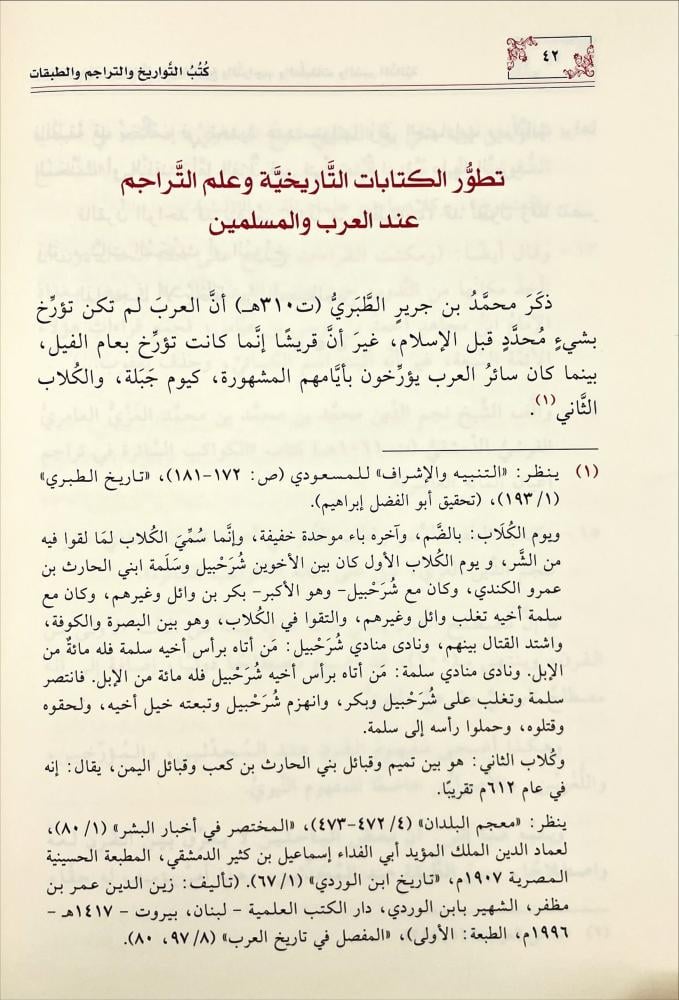 ٤٢
كُتُبُ التَّواريخ والتراجم والطبقات
تطوُّر الكتابات التَّاريخيَّة وعلم التَّراجم
عند العرب والمسلمين
ذكَرَ محمَّدُ بن جريرٍ الطَّبَريُّ (ت٣١٠هـ) أنَّ العربَ لم تكن تؤرِّخ
بشيءٍ مُحدَّدٍ قبل الإسلام، غيرَ أنَّ قريشًا إنَّما كانت تؤرِّخ بعام الفيل،
بينما كان سائرُ العرب يؤرِّخون بأيَّامهم المشهورة، كيوم جَبَلة، والكُلاب
الثَّاني(١).
(١) ينظر: «التنبيه والإشراف» للمسعودي (ص: ١٧٢-١٨١)، «تاريخ الطبري»
(١/ ١٩٣)، (تحقيق أبو الفضل إبراهيم).
ويوم الكُلَاب: بالضَّم، وآخره باء موحدة خفيفة، وإنَّما سُمِّيَ الكُلاب لمَا لقوا فيه
من الشَّر، و يوم الكُلاب الأول كان بين الأخوين شُرَحْبيل وسَلَمة ابني الحارث بن
عمرو الكندي، وكان مع شُرَحْبيل- وهو الأكبر- بكر بن وائل وغيرهم، وكان مع
سلمة أخيه تغلب وائل وغيرهم، والتقوا في الكُلاب، وهو بين البصرة والكوفة،
واشتد القتال بينهم، ونادى منادي شُرَحْبيل: مَن أتاه برأس أخيه سلمة فله مائةٌ من
الإبل. ونادى منادي سلمة: مَن أتاه برأس أخيه شُرَحْبيل فله مائة من الإبل. فانتصر
سلمة وتغلب على شُرَحْبيل وبكر، وانهزم شُرَحْبيل وتبعته خيل أخيه، ولحقوه
وقتلوه، وحملوا رأسه إلى سلمة.
وكُلاب الثاني: هو بين تميم وقبائل بني الحارث بن كعب وقبائل اليمن، يقال: إنه
في عام ٦١٢م تقريبًا.
ينظر: «معجم البلدان» (٤/ ٤٧٢-٤٧٣)، «المختصر في أخبار البشر» (١/ ٨٠)،
لعماد الدين الملك المؤيد أبي الفداء إسماعيل بن كثير الدمشقي، المطبعة الحسينية
المصرية ١٩٠٧م، «تاريخ ابن الوردي» (١/ ٦٧). (تأليف: زين الدين عمر بن
مظفر، الشهير بابن الوردي، دار الكتب العلمية - لبنان، بيروت - ١٤١٧هـ -
١٩٩٦م، الطبعة: الأولى)، «المفصل في تاريخ العرب» (٨/ ٩٧، ٨٠).